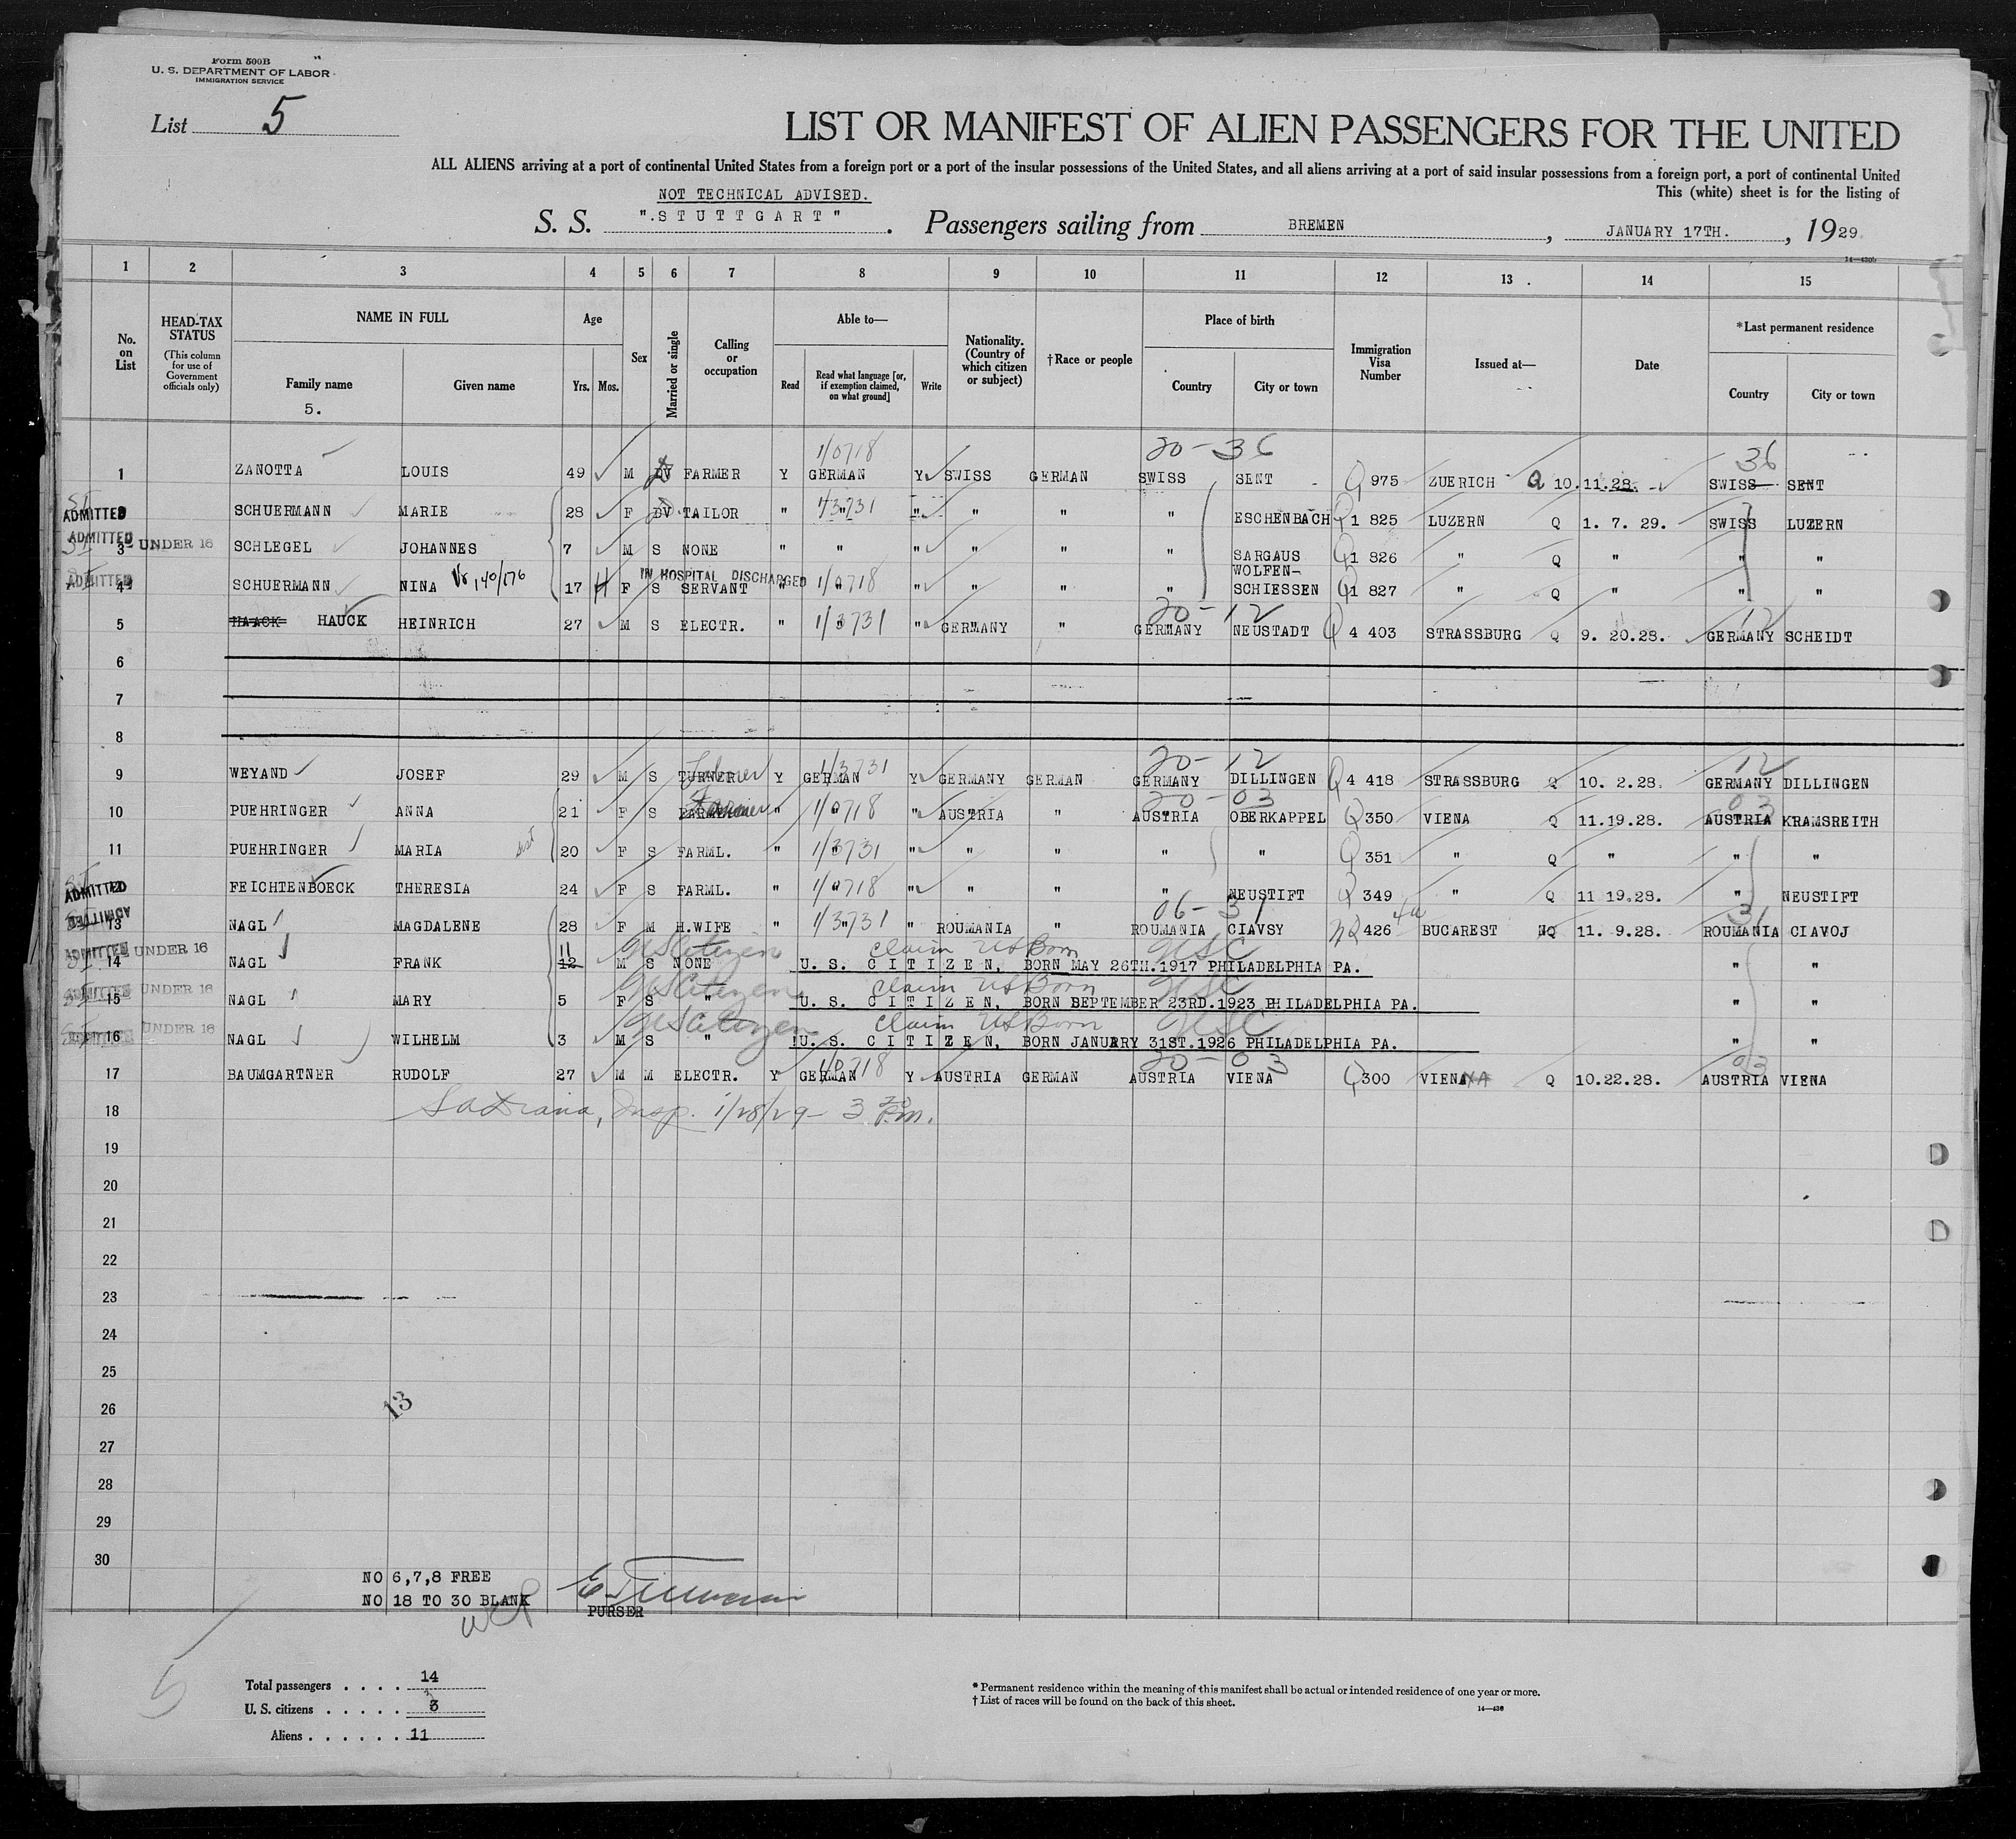 Form 500B
U. S. DEPARTMENT OF LABOR
IMMIGRATION SERVICE
List 5
LIST OR MANIFEST OF ALIEN PASSENGERS FOR THE UNITED
ALL ALIENS arriving at a port of continental United States from a foreign port or a port of the insular possessions of the United States, and all aliens arriving at a port of said insular possessions from a foreign port, a port of continental United
This (white) sheet is for the listing of
NOT TECHNICAL ADVISED.
S. S. ".STUTTGART" . Passengers sailing from BREMEN , JANUARY 17TH. , 1929.
14—430b
1 2 3 4 5 6 7 8 9 10 11 12 13 14 15
No. on List
HEAD-TAX STATUS (This column for use of Government officials only)
NAME IN FULL Family name Given name
5.
Age Yrs. Mos.
Sex
Married or single
Calling or occupation
Able to— Read Read what language [or, if exemption claimed, on what ground] Write
Nationality. (Country of which citizen or subject)
†Race or people
Place of birth Country City or town
Immigration Visa Number
Issued at—
Date
*Last permanent residence Country City or town
1/0718 20-36 36
1 ZANOTTA LOUIS 49 M DV FARMER Y GERMAN Y SWISS GERMAN SWISS SENT Q 975 ZUERICH Q 10.11.28. SWISS SENT
SI ADMITTED 2 SCHUERMANN MARIE 28 F DV TAILOR " 43731 " " " " " ESCHENBACH Q1 825 LUZERN Q 1. 7. 29. SWISS LUZERN
ADMITTED 3 UNDER 16 SCHLEGEL JOHANNES 7 M S NONE " " " " " " SARGAUS Q1 826 " Q " " "
IN HOSPITAL DISCHARGED
ADMITTED 4 SCHUERMANN NINA 17 F S SERVANT " 1/0718 " " " " " WOLFEN-SCHIESSEN Q1 827 " Q " " "
20-12 12
5 HAACK HAUCK HEINRICH 27 M S ELECTR. " 1/3731 " " GERMANY " GERMANY NEUSTADT Q 4 403 STRASSBURG Q 9. 20.28. GERMANY SCHEIDT
6
7
8
1/3731 20-12 12
9 WEYAND JOSEF 29 M S TURNER Y GERMAN Y GERMANY GERMAN GERMANY DILLINGEN Q 4 418 STRASSBURG Q 10. 2.28. GERMANY DILLINGEN
20-03 03
10 PUEHRINGER ANNA 21 F S " 1/0718 " " AUSTRIA " AUSTRIA OBERKAPPEL Q 350 VIENA Q 11.19.28. AUSTRIA KRAMSREITH
11 PUEHRINGER MARIA 20 F S FARML. " 1/3731 " " " " " " Q 351 " Q " " "
SI ADMITTED 12 FEICHTENBOECK THERESIA 24 F S FARML. " 1/0718 " " " " " NEUSTIFT Q 349 " Q 11 19.28. " NEUSTIFT
06-31 31
ADMITTED 13 NAGL MAGDALENE 28 F M H.WIFE " 1/3731 " " ROUMANIA " ROUMANIA CIAVSY NQ 426 4a BUCAREST NQ 11. 9.28. ROUMANIA CIAVOJ
11 US Citizen claim US Born USC
ADMITTED UNDER 16 14 NAGL FRANK 12 M S NONE U. S. CITIZEN, BORN MAY 26TH.1917 PHILADELPHIA PA. " "
US Citizen claim US Born USC
ADMITTED UNDER 16 15 NAGL MARY 5 F S " U. S. CITIZEN, BORN SEPTEMBER 23RD.1923 PHILADELPHIA PA. " "
US Citizen claim US Born USC
ADMITTED UNDER 16 16 NAGL WILHELM 3 M S " U. S. CITIZEN, BORN JANUARY 31ST.1926 PHILADELPHIA PA. " "
1/0718 20-03 03
17 BAUMGARTNER RUDOLF 27 M M ELECTR. Y GERMAN Y AUSTRIA GERMAN AUSTRIA VIENA Q 300 VIENA Q 10.22.28. AUSTRIA VIENA
18 Insp. 1/28/29 - 3 20 P.m.
19
20
21
22
23
24
25
26
13
27
28
29
30
NO 6,7,8 FREE
NO 18 TO 30 BLANK
PURSER
5
Total passengers . . . . 14
U. S. citizens . . . . . 3
Aliens . . . . . . 11
* Permanent residence within the meaning of this manifest shall be actual or intended residence of one year or more.
† List of races will be found on the back of this sheet.
14—430